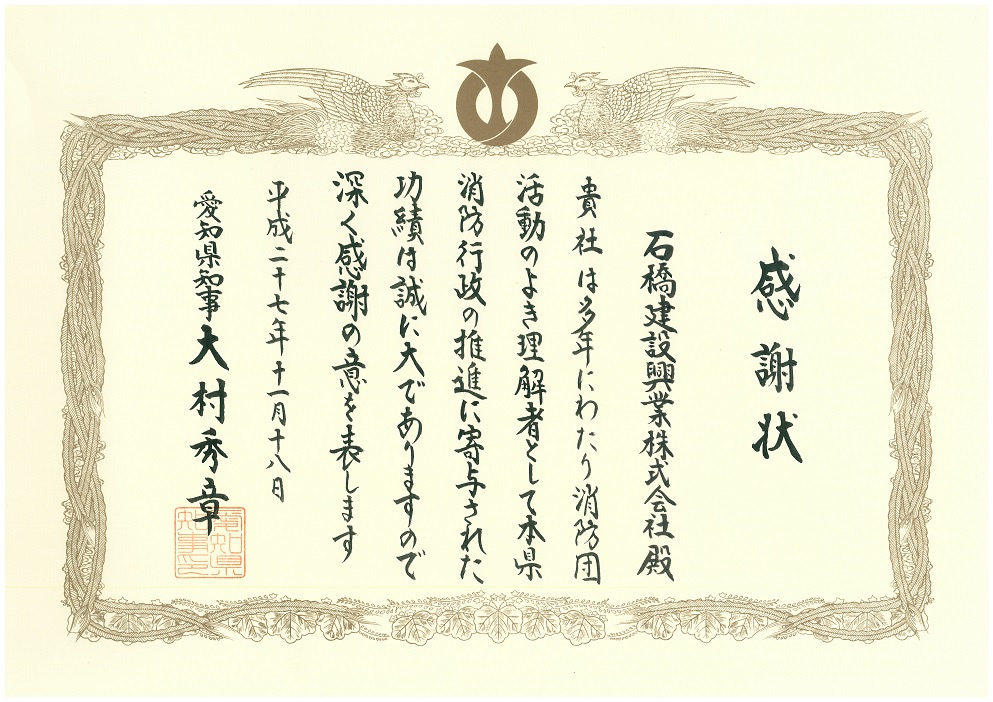 感謝状
石橋建設興業株式会社殿
貴社は多年にわたり消防団
活動のよき理解者として本県
消防行政の推進に寄与された
功績は誠に大でありますので
深く感謝の意を表します
平成二十七年十一月十八日
愛知県知事大村秀章
愛知県
知事之印